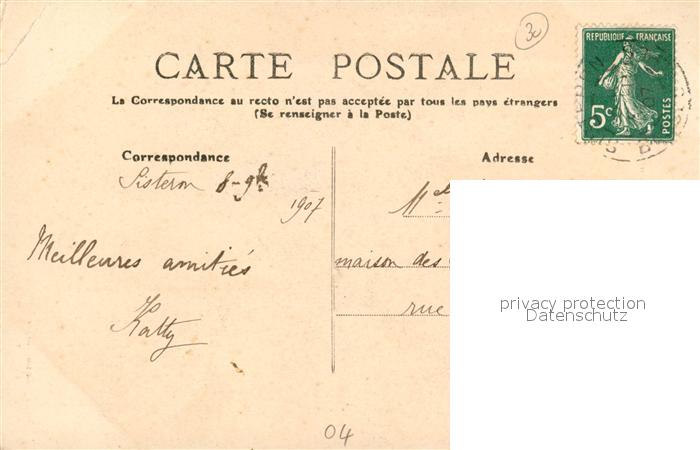 30
CARTE POSTALE
REPUBLIQUE FRANÇAISE
5c
POSTES
La Correspondance au recto n'est pas acceptée par tous les pays étrangers
(Se renseigner à la Poste)
Correspondance
Sisteron 8-9bre
1907
Meilleures amitiés
Katty
Adresse
Melle
maison des
rue
privacy protection
Datenschutz
04